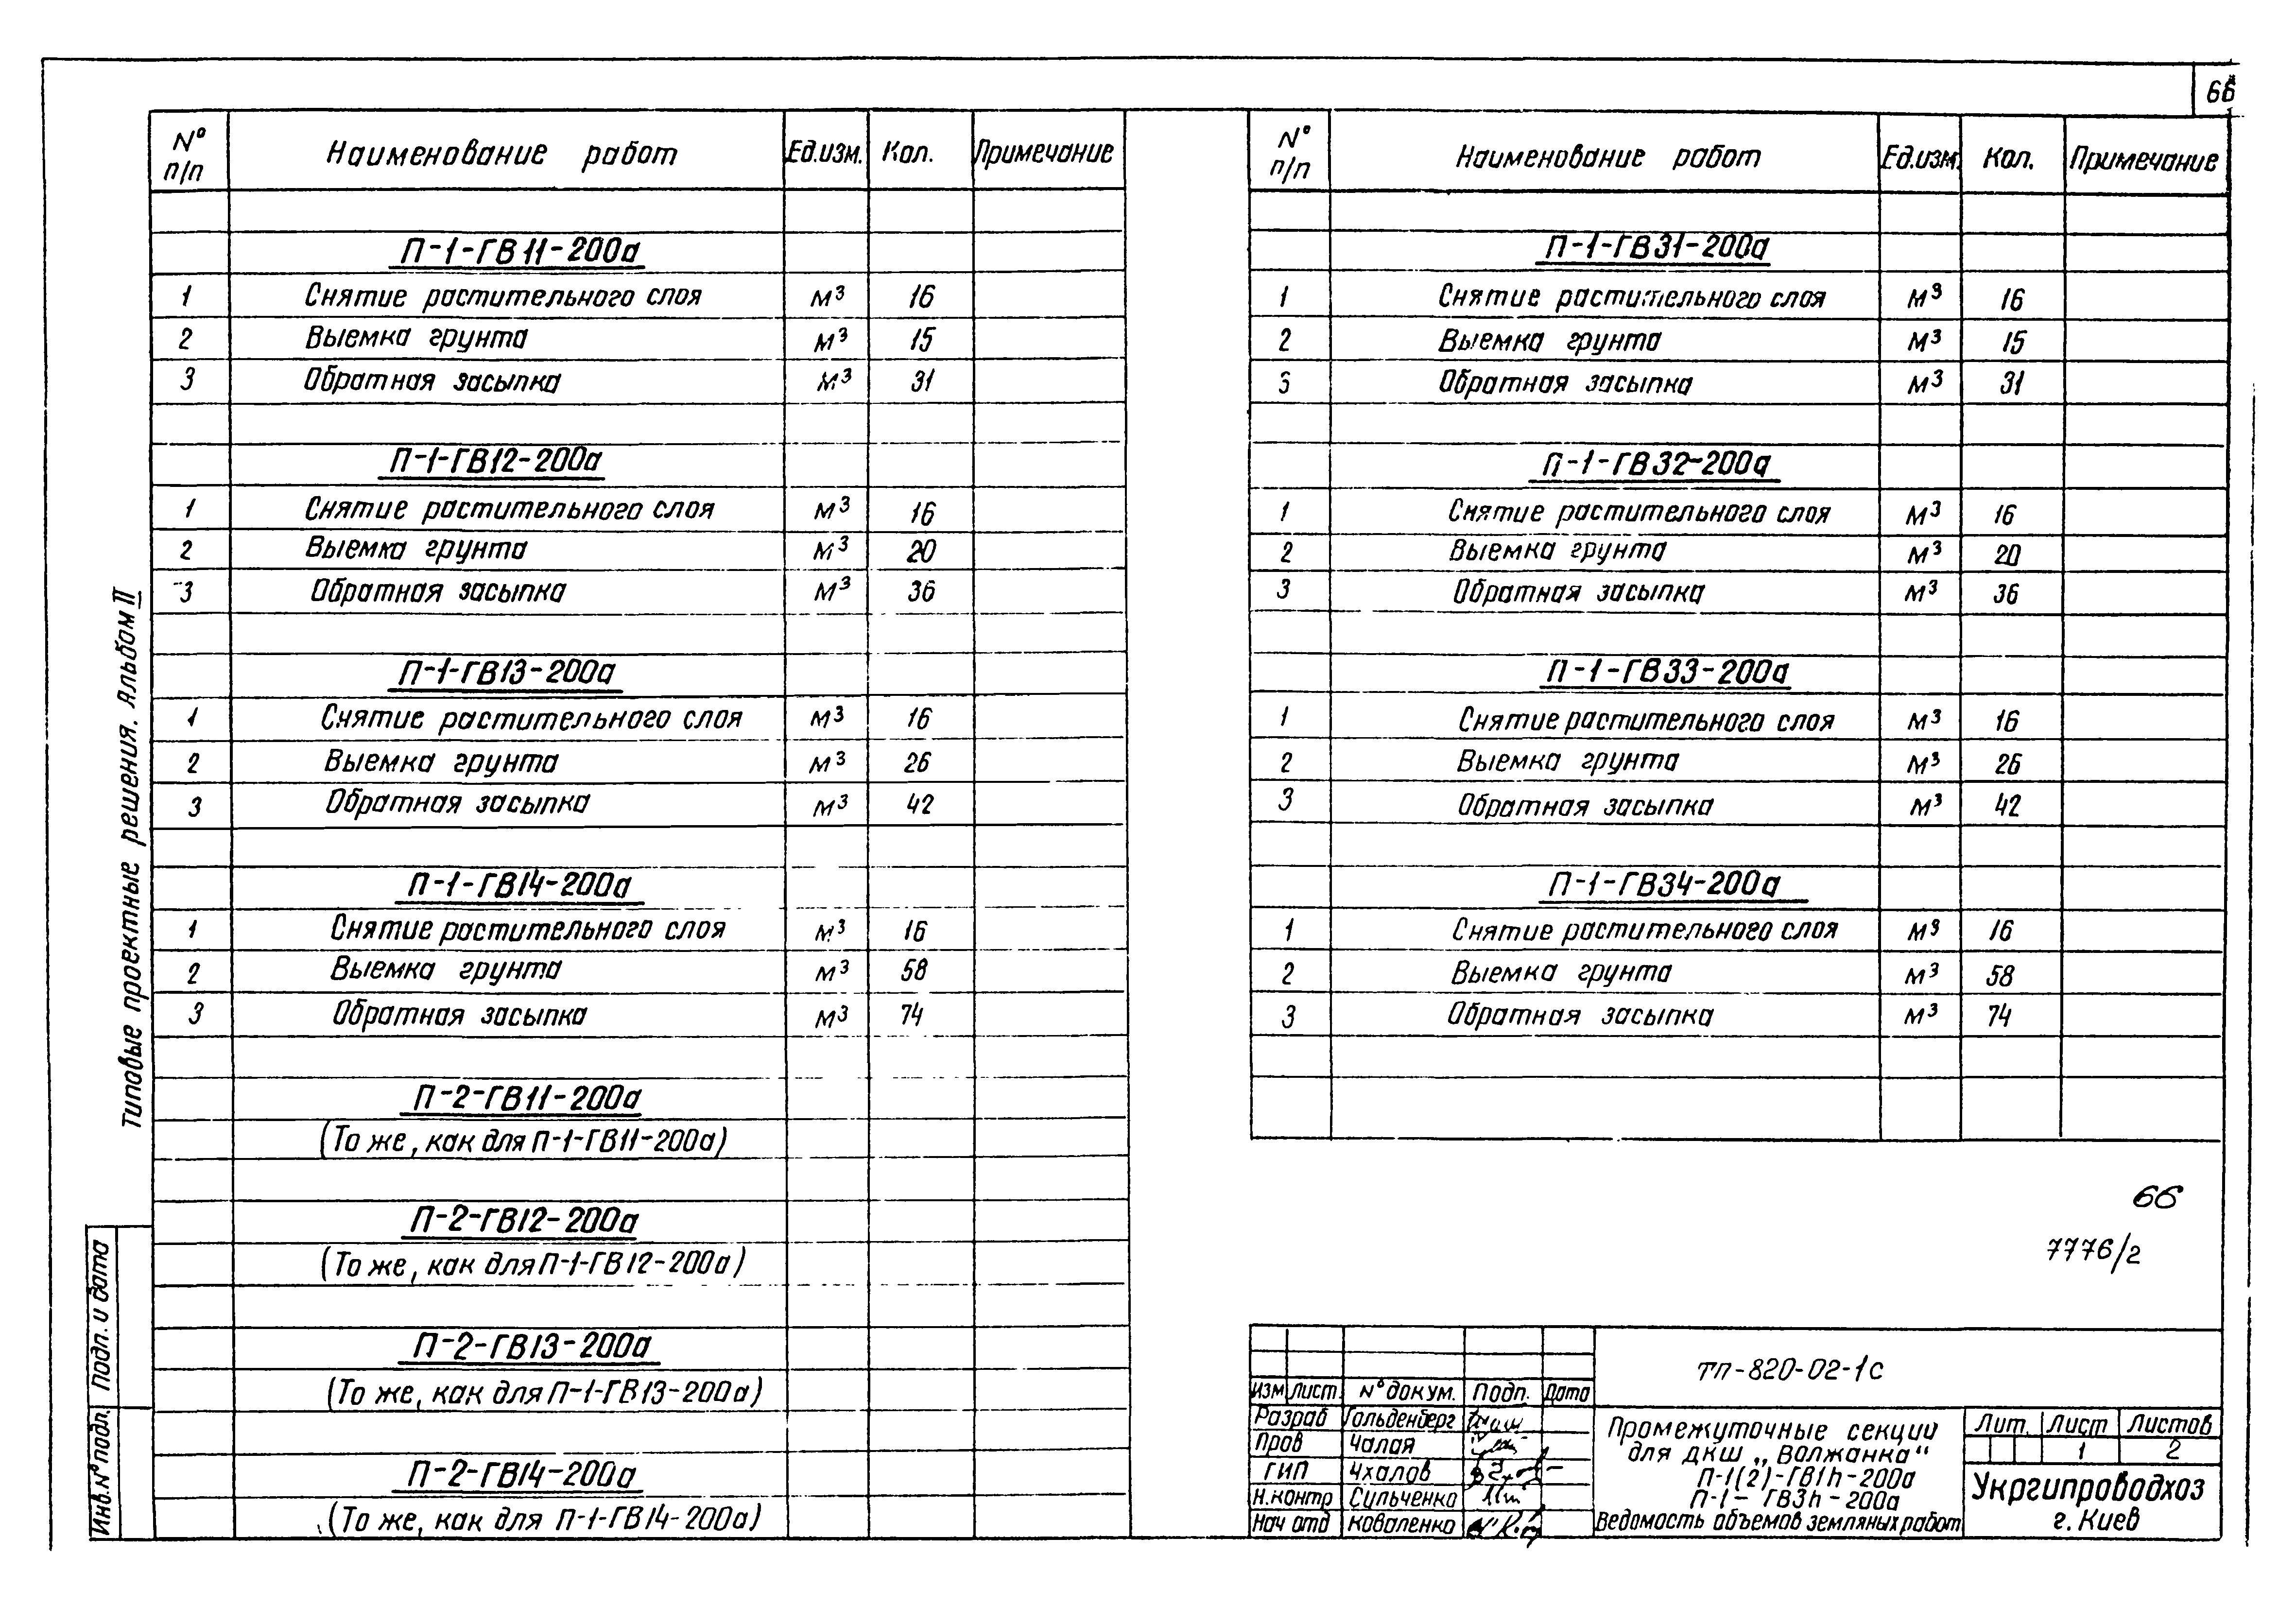 66
№ п/п Наименование работ Ед.изм. Кол. Примечание
П-1-ГВ11-200а
1 Снятие растительного слоя м³ 16
2 Выемка грунта м³ 15
3 Обратная засыпка м³ 31
П-1-ГВ12-200а
1 Снятие растительного слоя м³ 16
2 Выемка грунта м³ 20
3 Обратная засыпка м³ 36
П-1-ГВ13-200а
1 Снятие растительного слоя м³ 16
2 Выемка грунта м³ 26
3 Обратная засыпка м³ 42
П-1-ГВ14-200а
1 Снятие растительного слоя м³ 16
2 Выемка грунта м³ 58
3 Обратная засыпка м³ 74
П-2-ГВ11-200а
(То же, как для П-1-ГВ11-200а)
П-2-ГВ12-200а
(То же, как для П-1-ГВ12-200а)
П-2-ГВ13-200а
(То же, как для П-1-ГВ13-200а)
П-2-ГВ14-200а
(То же, как для П-1-ГВ14-200а)
№ п/п Наименование работ Ед.изм. Кол. Примечание
П-1-ГВ31-200а
1 Снятие растительного слоя м³ 16
2 Выемка грунта м³ 15
3 Обратная засыпка м³ 31
П-1-ГВ32-200а
1 Снятие растительного слоя м³ 16
2 Выемка грунта м³ 20
3 Обратная засыпка м³ 36
П-1-ГВ33-200а
1 Снятие растительного слоя м³ 16
2 Выемка грунта м³ 26
3 Обратная засыпка м³ 42
П-1-ГВ34-200а
1 Снятие растительного слоя м³ 16
2 Выемка грунта м³ 58
3 Обратная засыпка м³ 74
66
7776/2
тп-820-02-1с
Изм Лист № докум. Подп. Дата
Разраб Гольденберг
Пров Чалая
ГИП Чхалов
Н.контр Сильченко
Нач отд Коваленко
Промежуточные секции
для ДКШ „Волжанка"
П-1(2)-ГВ1h-200а
П-1-ГВ3h-200а
Ведомость объемов земляных работ
Лит. Лист Листов
1 2
Укргипроводхоз
г. Киев
Типовые проектные решения. Альбом II
Подп. и дата
Инв.№ подл.